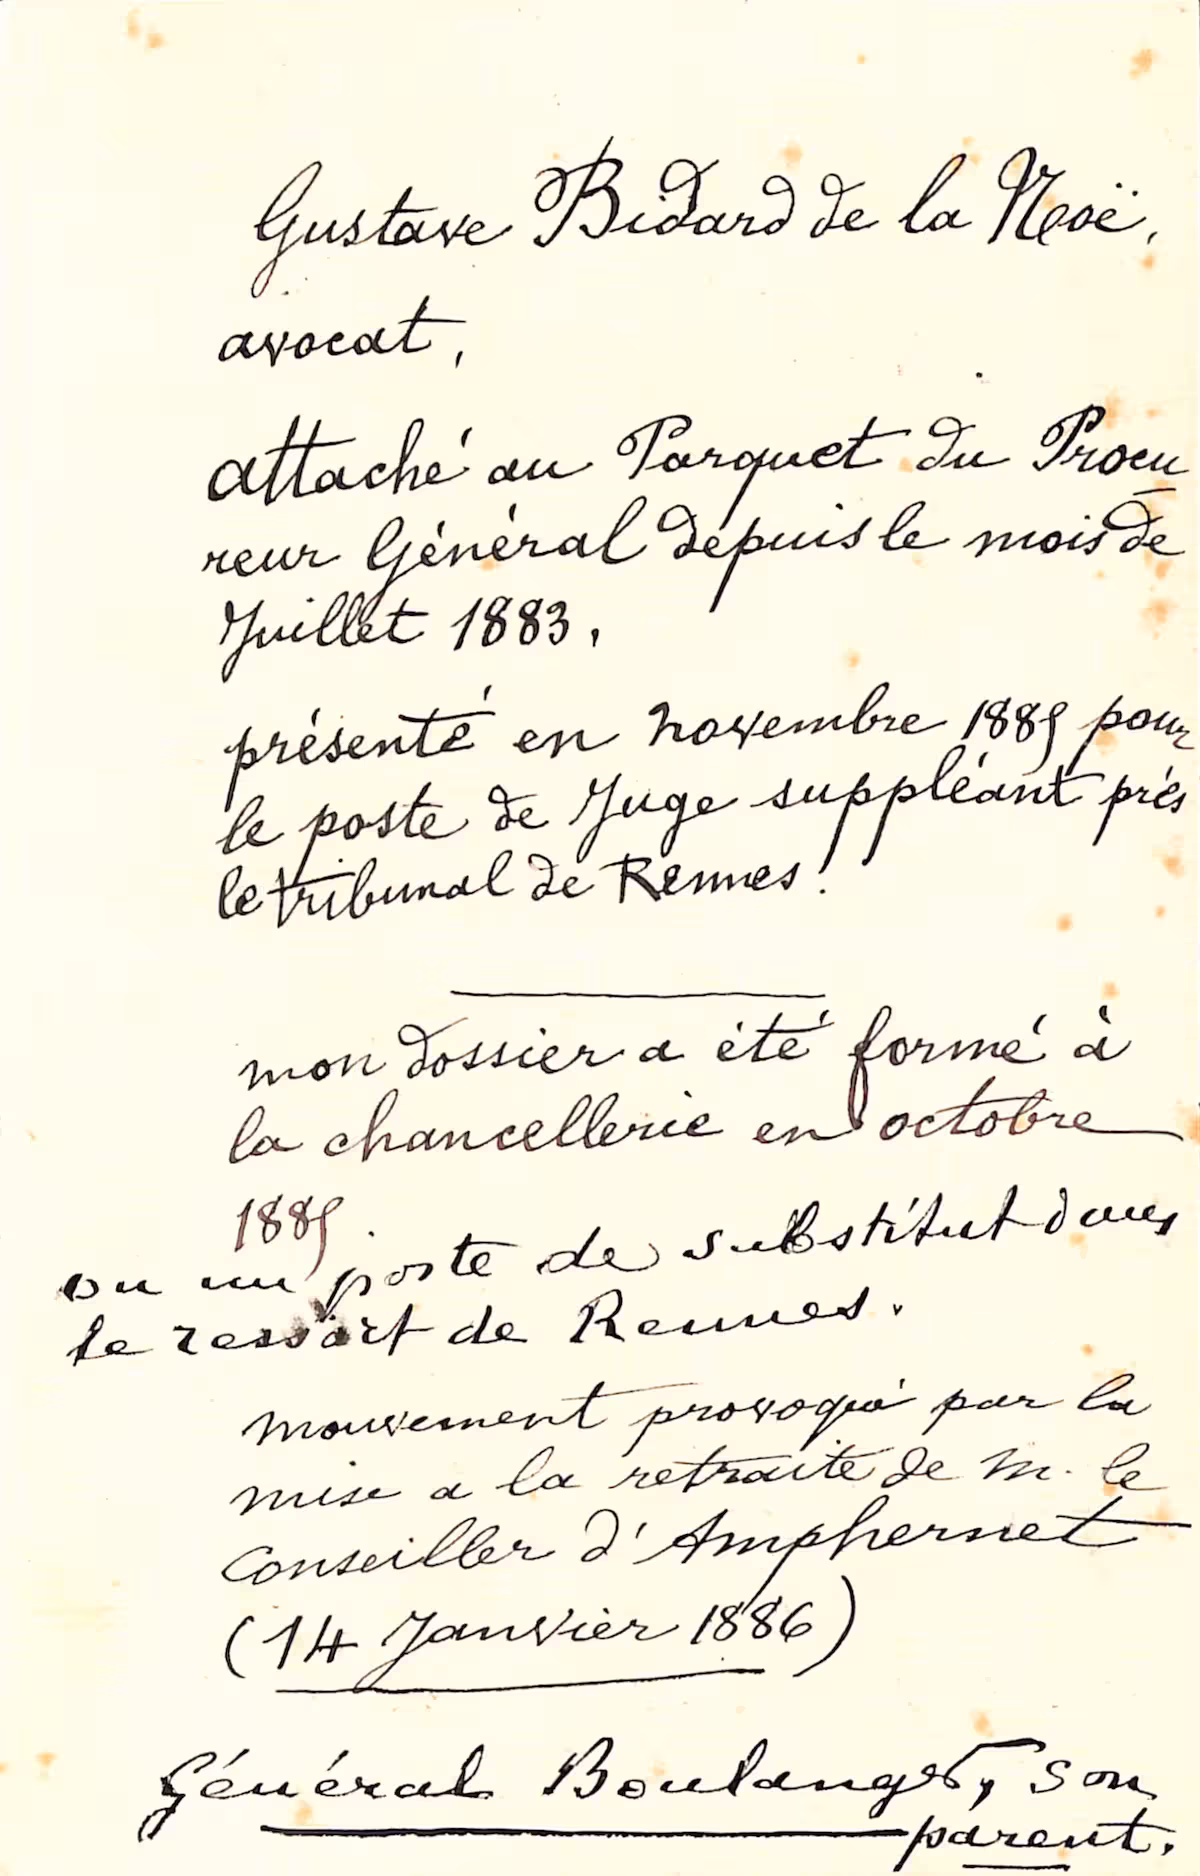 Gustave Bidard de la Noë,
avocat,
attaché au Parquet du Procu
reur Général depuis le mois de
Juillet 1883.
présenté en novembre 1885 pour
le poste de Juge suppléant près
le tribunal de Rennes.
mon dossier a été formé à
la chancellerie en octobre
1885.
ou un poste de substitut dans
le ressort de Rennes.
mouvement provoqué par la
mise a la retraite de M. le
Conseiller d'Amphernet
(14 Janvier 1886)
Général Boulanger, son
parent.